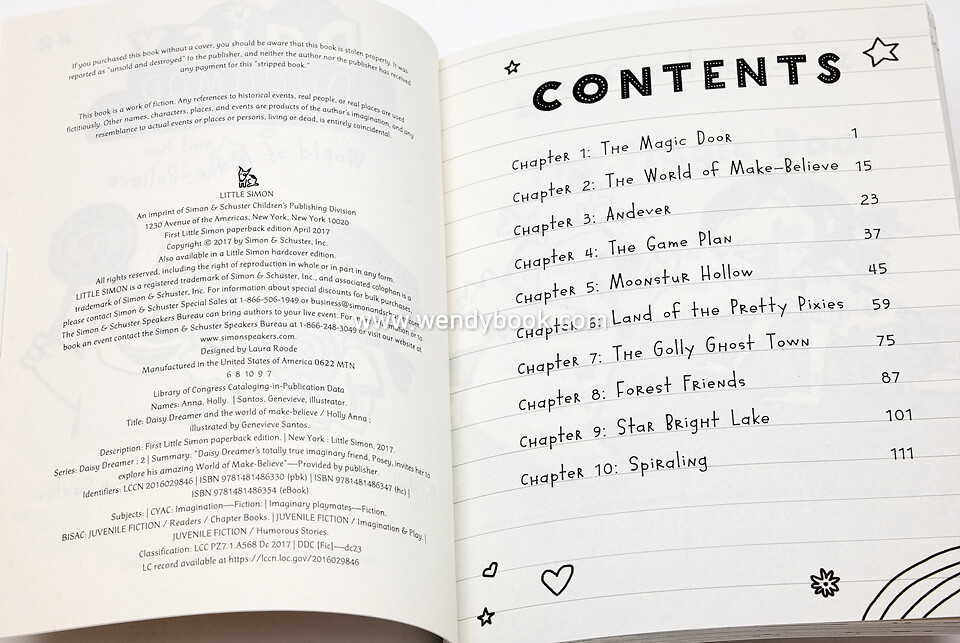 If you purchased this book without a cover, you should be aware that this book is stolen property. It was
reported as "unsold and destroyed" to the publisher, and neither the author nor the publisher has received
any payment for this "stripped book."
This book is a work of fiction. Any references to historical events, real people, or real places are used
fictitiously. Other names, characters, places, and events are products of the author's imagination, and any
resemblance to actual events or places or persons, living or dead, is entirely coincidental.
LITTLE SIMON
An imprint of Simon & Schuster Children's Publishing Division
1230 Avenue of the Americas, New York, New York 10020
First Little Simon paperback edition April 2017
Copyright © 2017 by Simon & Schuster, Inc.
Also available in a Little Simon hardcover edition.
All rights reserved, including the right of reproduction in whole or in part in any form.
LITTLE SIMON is a registered trademark of Simon & Schuster, Inc., and associated colophon is a
trademark of Simon & Schuster, Inc. For information about special discounts for bulk purchases,
please contact Simon & Schuster Special Sales at 1-866-506-1949 or business@simonandschuster.com.
The Simon & Schuster Speakers Bureau can bring authors to your live event. For more information or to
book an event contact the Simon & Schuster Speakers Bureau at 1-866-248-3049 or visit our website at
www.simonspeakers.com.
Designed by Laura Roode
Manufactured in the United States of America 0622 MTN
6 8 10 9 7
Library of Congress Cataloging-in-Publication Data
Names: Anna, Holly. | Santos, Genevieve, illustrator.
Title: Daisy Dreamer and the world of make-believe / Holly Anna ;
illustrated by Genevieve Santos.
Description: First Little Simon paperback edition. | New York : Little Simon, 2017.
Series: Daisy Dreamer ; 2 | Summary: "Daisy Dreamer's totally true imaginary friend, Posey, invites her to
explore his amazing World of Make-Believe"—Provided by publisher.
Identifiers: LCCN 2016029846 | ISBN 9781481486330 (pbk) | ISBN 9781481486347 (hc) |
ISBN 9781481486354 (eBook)
Subjects: | CYAC: Imagination—Fiction. | Imaginary playmates—Fiction.
BISAC: JUVENILE FICTION / Readers / Chapter Books. | JUVENILE FICTION / Imagination & Play. |
JUVENILE FICTION / Humorous Stories.
Classification: LCC PZ7.1.A568 Dc 2017 | DDC [Fic]—dc23
LC record available at https://lccn.loc.gov/2016029846
www.wendybook.com
CONTENTS
Chapter 1: The Magic Door 1
Chapter 2: The World of Make-Believe 15
Chapter 3: Andever 23
Chapter 4: The Game Plan 37
Chapter 5: Moonstur Hollow 45
Chapter 6: Land of the Pretty Pixies 59
Chapter 7: The Golly Ghost Town 75
Chapter 8: Forest Friends 87
Chapter 9: Star Bright Lake 101
Chapter 10: Spiraling 111